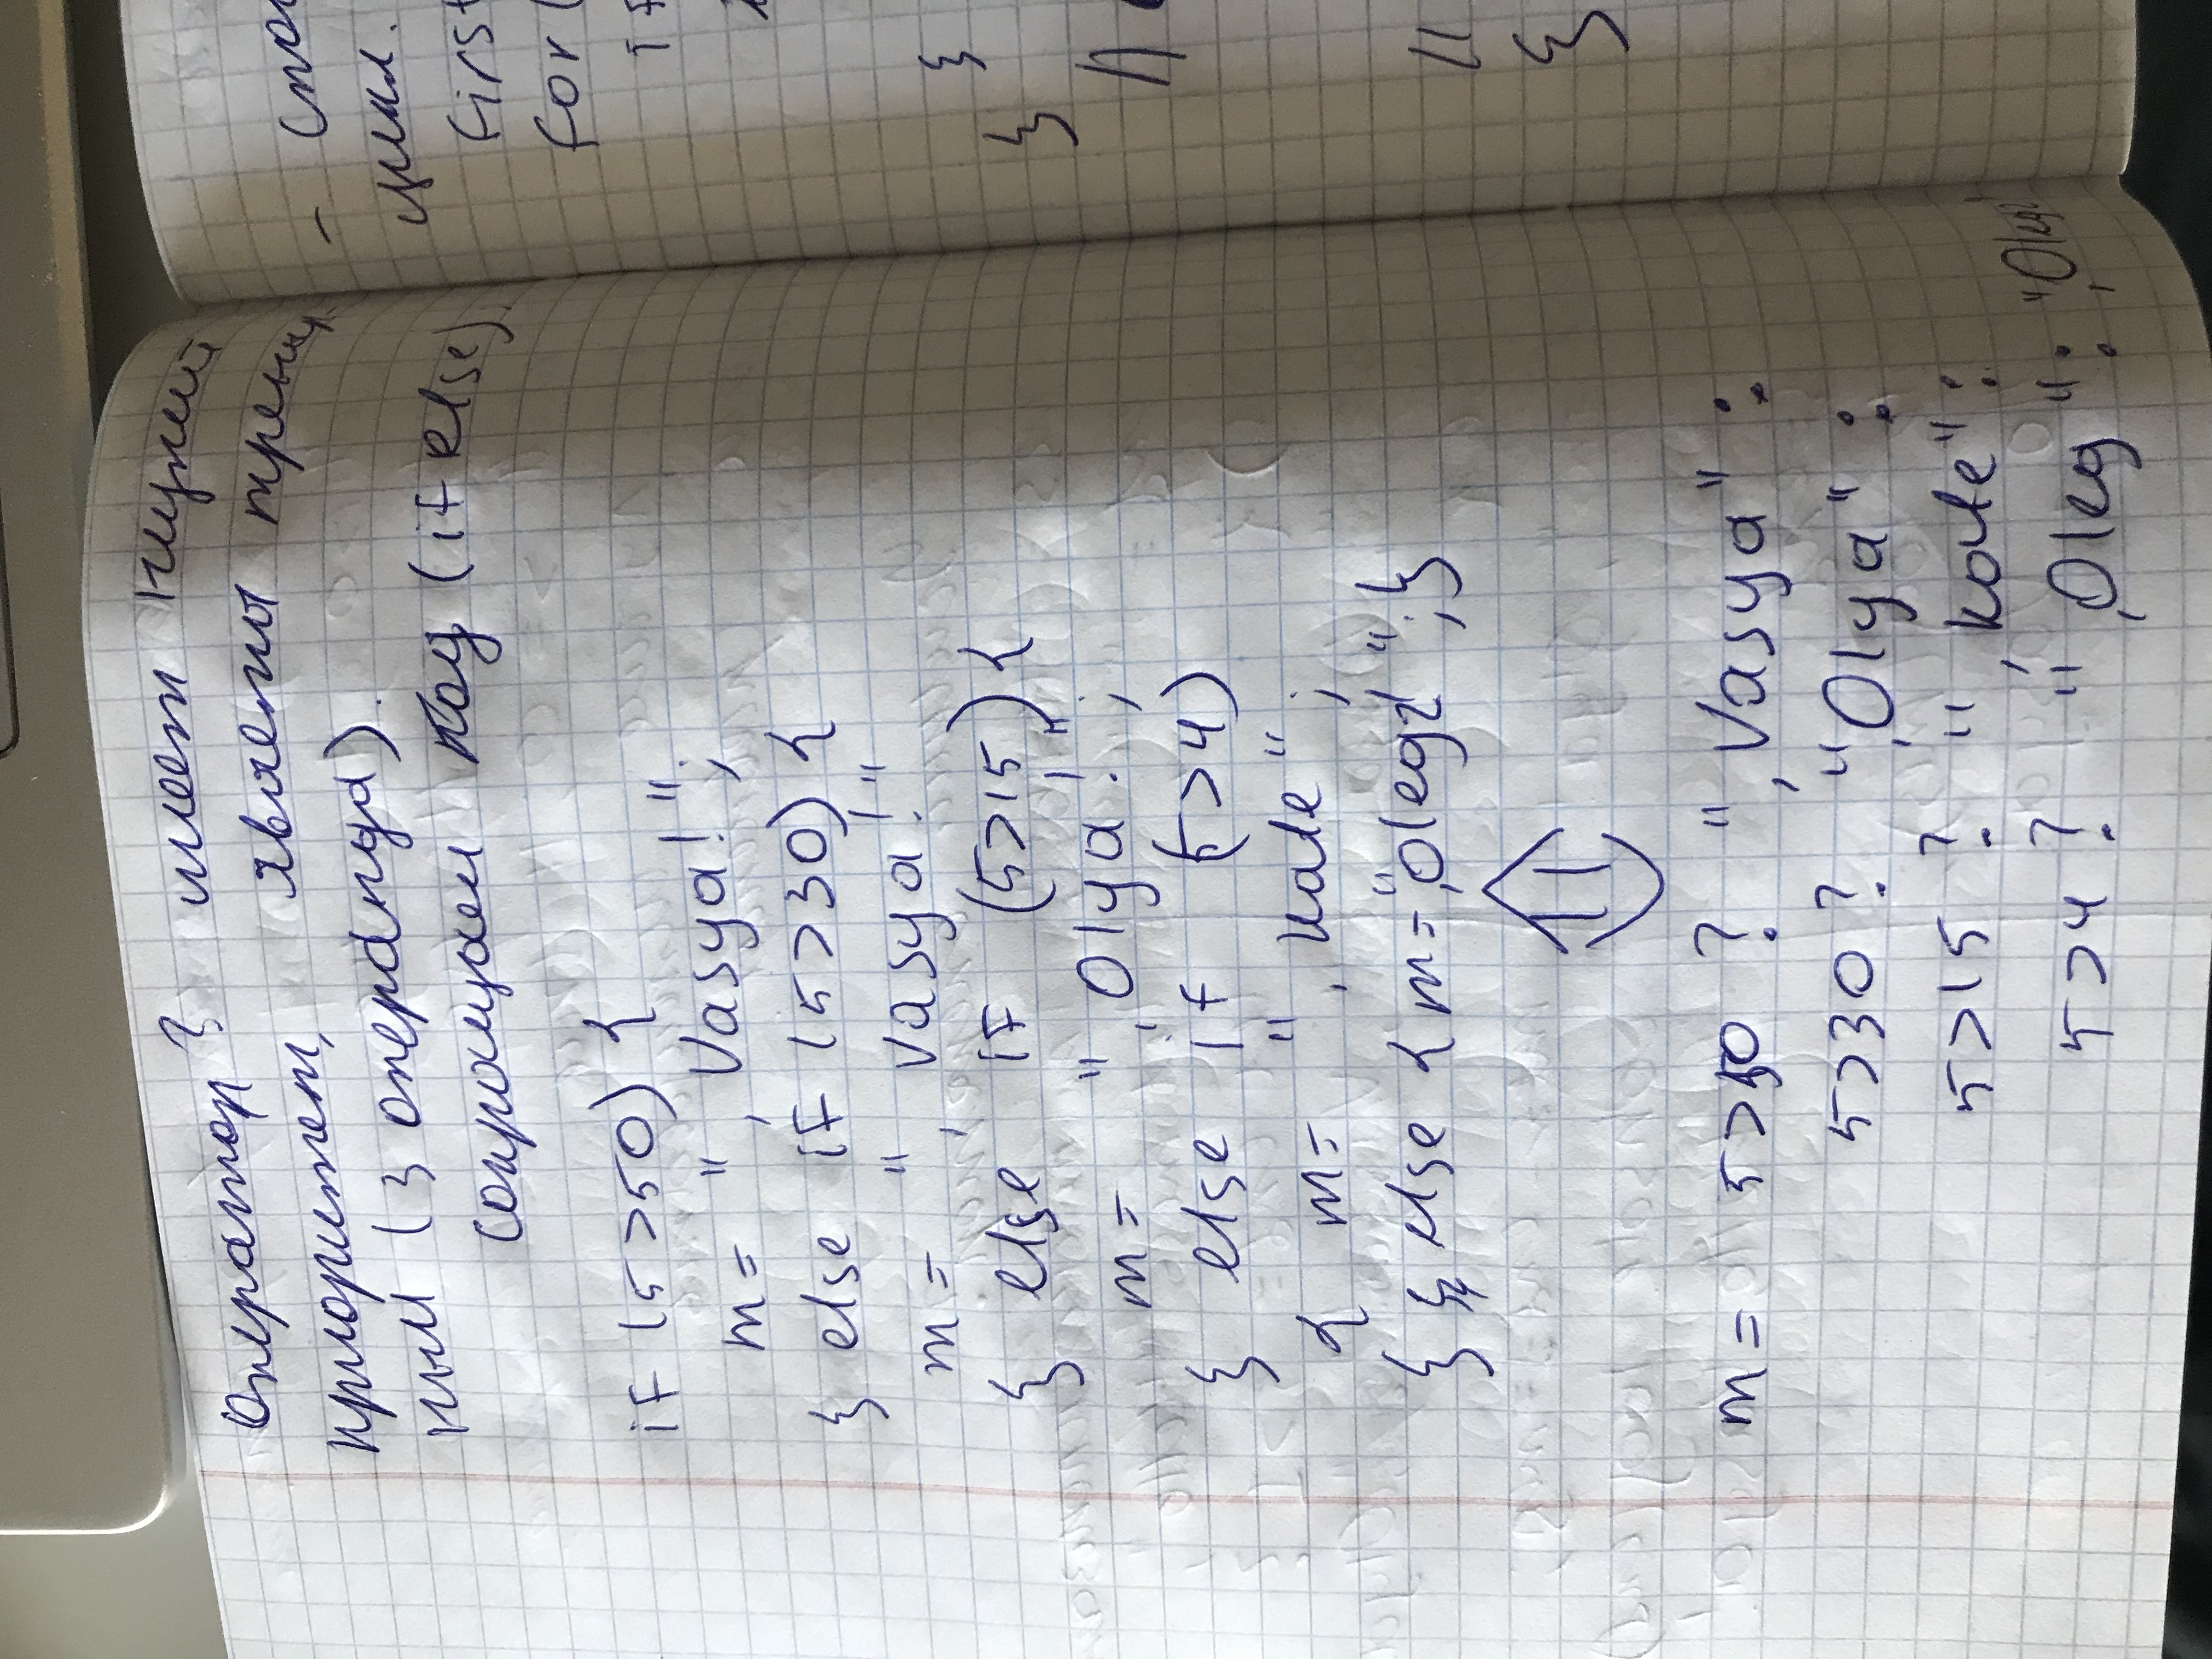 Оператор ? имеет низкий
приоритет, является тренар-
ным (3 операнда).
Сокращаем код (if else).
if (5>50) {
m= ", Vasya!";
} else if (5>30) {
m= ", Vasya!"
} else if (5>15) {
m= ", Olya!";
} else if (5>4)
{ m= ", kate";
} else {m=",Oleg2";}
m= 5>50 ? ", Vasya" :
5>30 ? ",Olya" :
5>15 ? ", kate" :
5>4 ? ",Oleg" : ",Oleg2"
цикл.
first
for (
if
}
}
//
}